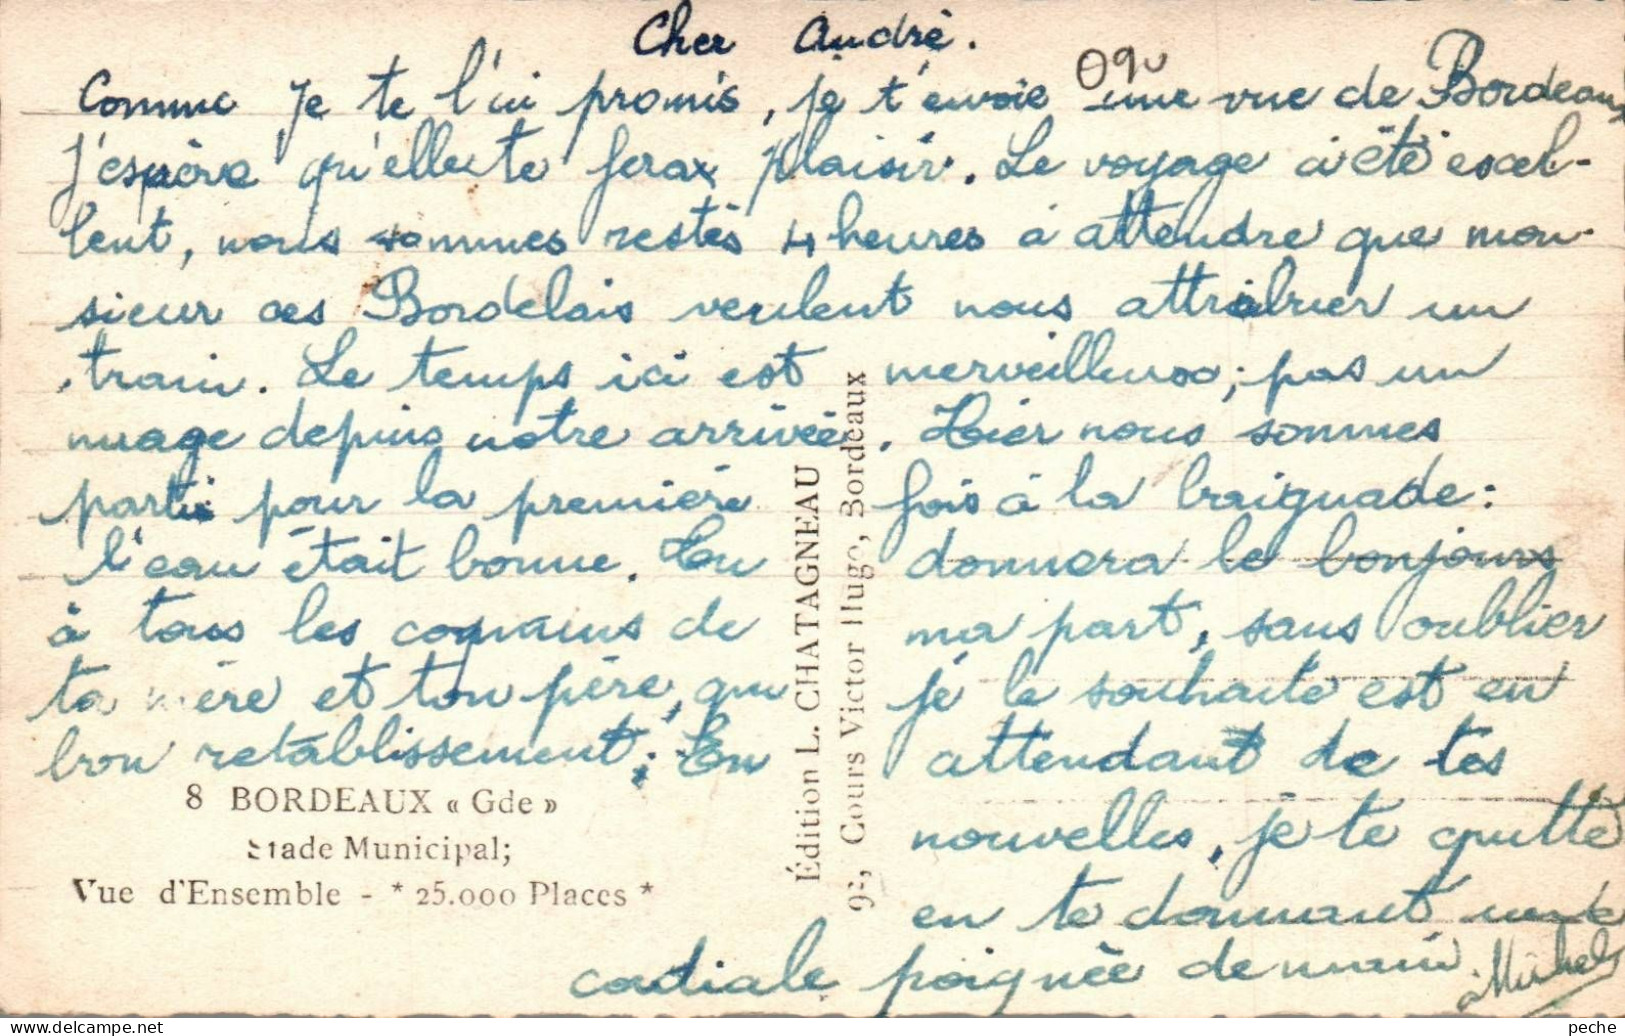 Cher André.
Comme je te l'ai promis, je t'envoie une vue de Bordeaux
J'espère qu'elle te fera plaisir. Le voyage a été escel-
lent, nous sommes restés 4 heures à attendre que mon-
sieur ces Bordelais veulent nous attribuer un
train. Le temps ici est merveilleux; pas un
nuage depuis notre arrivée. Hier nous sommes
partis pour la première fois à la baignade:
l'eau était bonne. Tu donnera le bonjours
à tous les copains de ma part, sans oublier
ta mère et ton père, qui je le souhaite est en
bon retablissement; En attendant de tes
nouvelles, je te quitte
en te donnant une
cordiale poignée de main.
Michel
8 BORDEAUX « Gde »
Stade Municipal;
Vue d'Ensemble - * 25.000 Places *
Édition L. CHATAGNEAU
92, Cours Victor Hugo, Bordeaux
peche